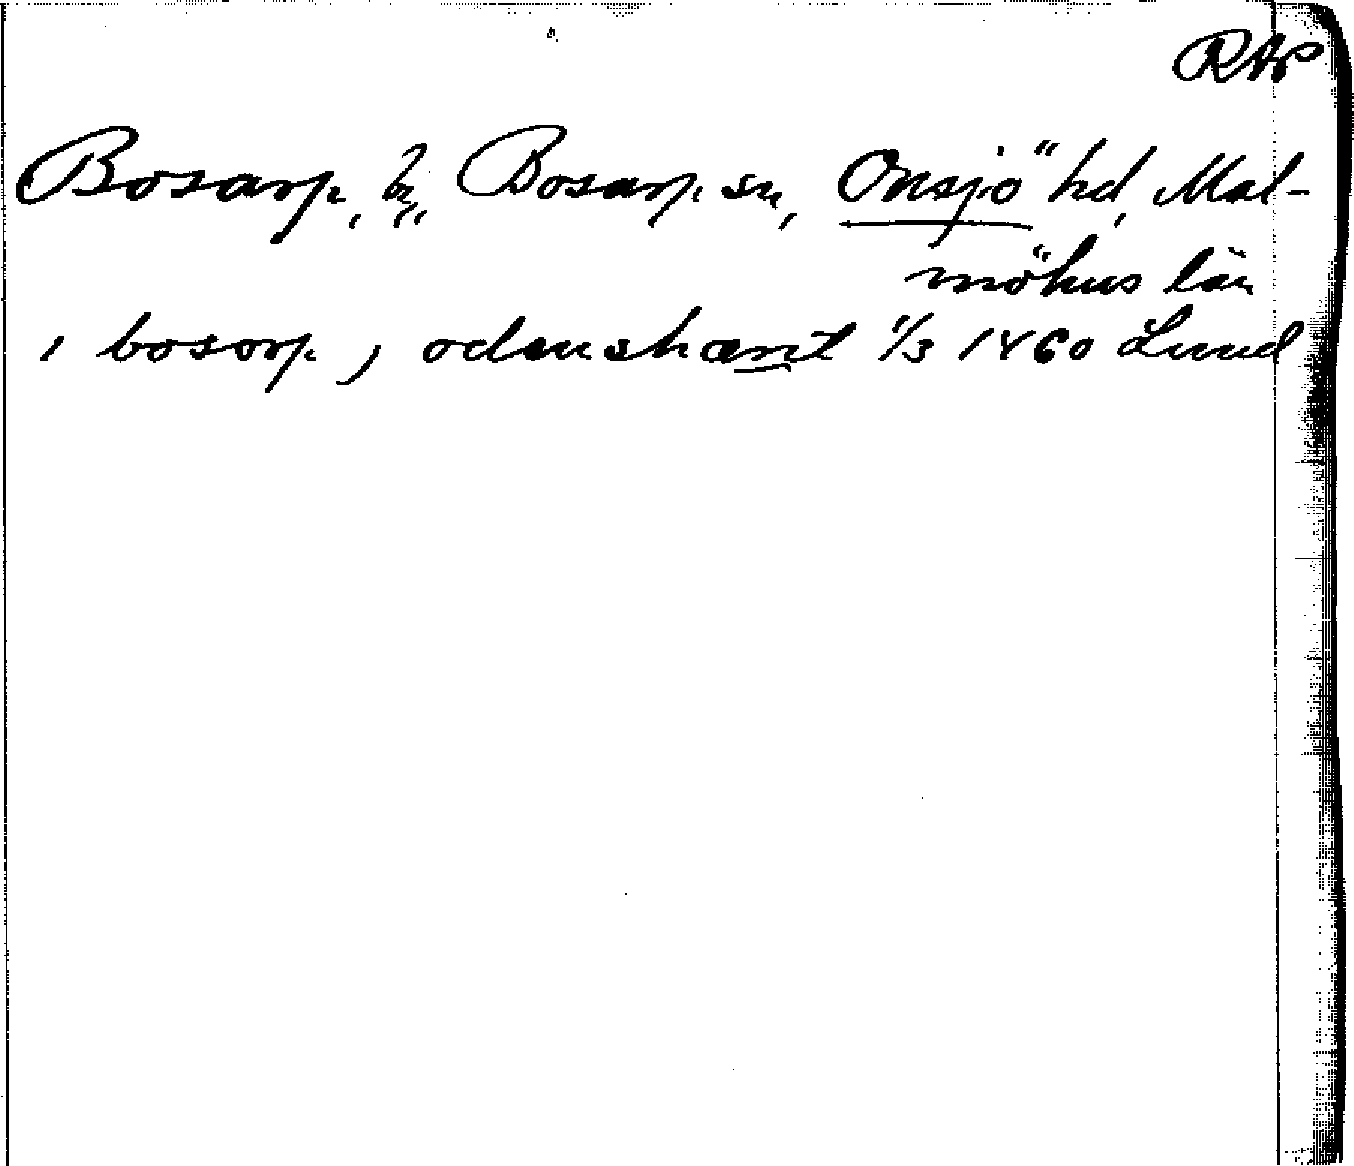 RAP
Bosarp, by, Bosarp sn, Onsjö hd, Mal-
möhus län
i bosorp, odenshærit 1/3 1460 Lund